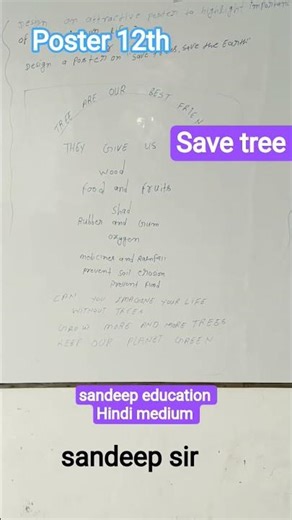 Design an attractive poster to highlight
of
Poster 12th
Design a poster on save save the Earth
TREE ARE OUR BEST FRIEN
Save tree
THEY GIVE US
wood
food and fruits
Shad
Rubber and Gum
oxygen
medicines and Rainfall
prevent soil erosion
prevent flood
CAN YOU IMAGINE YOUR LIFE
WITHOUT TREES
GROW MORE AND MORE TREES
KEEP OUR PLANET GREEN
sandeep education
Hindi medium
sandeep sir